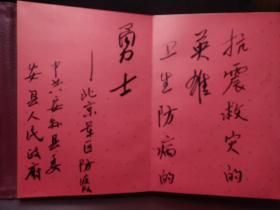 抗震救灾的
英雄
卫生防病的
勇士
——北京军区防疫
中共安县县委
安县人民政府